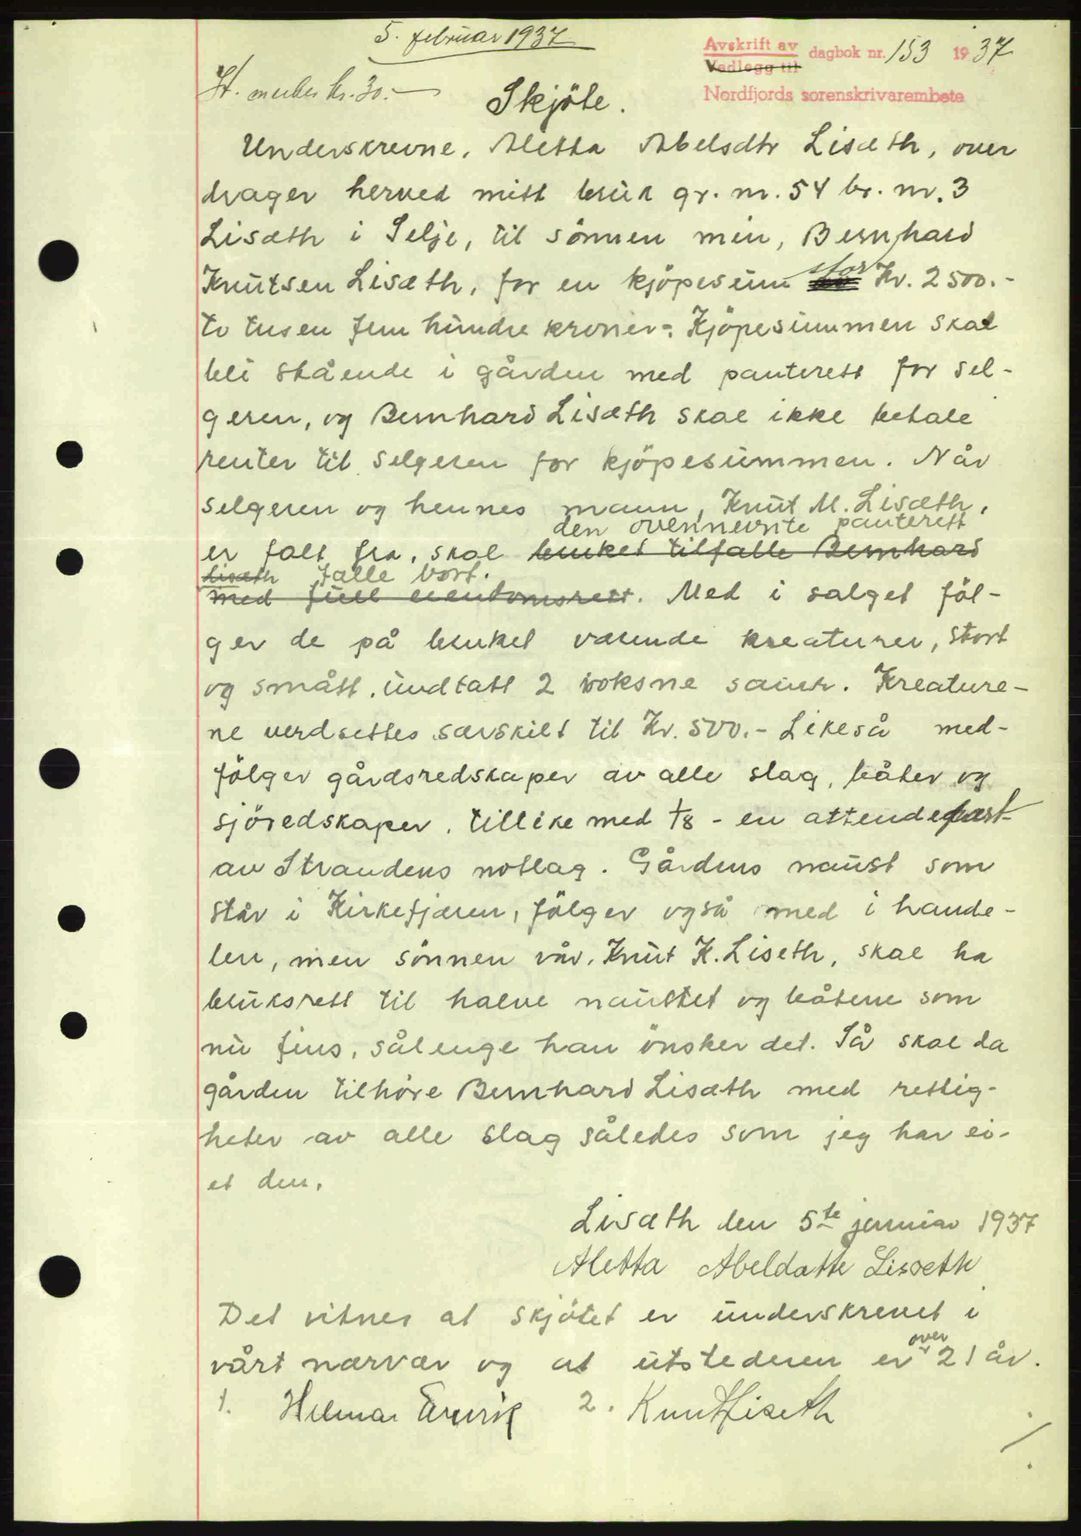 5. februar 1937
Avskrift av
Vedlegg til
dagbok nr. 153 1937
Nordfjords sorenskrivarembete
St. merker kr. 30.-
Skjöte.
Underskrevne, Aletta Abelsdtr Lisæth, over
drager herved mitt bruk gr. nr. 54 br. nr. 3
Lisæth i Selje, til sönnen min, Bernhard
Knutsen Lisæth, for en kjöpesum stor Kr. 2500.-
to tusen fem hundre kroner. Kjöpesummen skal
bli stående i gården med panterett for sel-
geren, og Bernhard Lisæth skal ikke betale
renter til selgeren for kjöpesummen. Når
selgeren og hennes mann, Knut M. Lisæth,
den ovennevnte panterett
er falt fra, skal bruket tilfalle Bernhard
Lisæth falle bort.
med full eiendomsrett. Med i salget föl-
ger de på bruket værende kreaturer, stort
og smått, undtatt 2 voksne sauer. Kreature-
ne verdsettes særskilt til Kr. 500.- Likeså med-
fölger gårdsredskaper av alle slag, båter og
sjöredskaper, tillike med 1/8 - en attendepart
av Strandens notlag. Gårdens naust som
står i Kirkefjæren, fölger også med i hande-
len, men sönnen vår, Knut K. Liseth, skal ha
bruksrett til halve naustet og båtene som
nu fins, sålenge han önsker det. Så skal da
gården tilhöre Bernhard Lisæth med rettig-
heter av alle slag således som jeg har ei-
et den.
Lisæth den 5te januar 1937
Aletta Abeldatte Lisseth
Det vitnes at skjötet er underskrevet i
vårt nærvær og at utstederen er over 21 år.
1. Hilmar Ervik 2. Knut Liseth